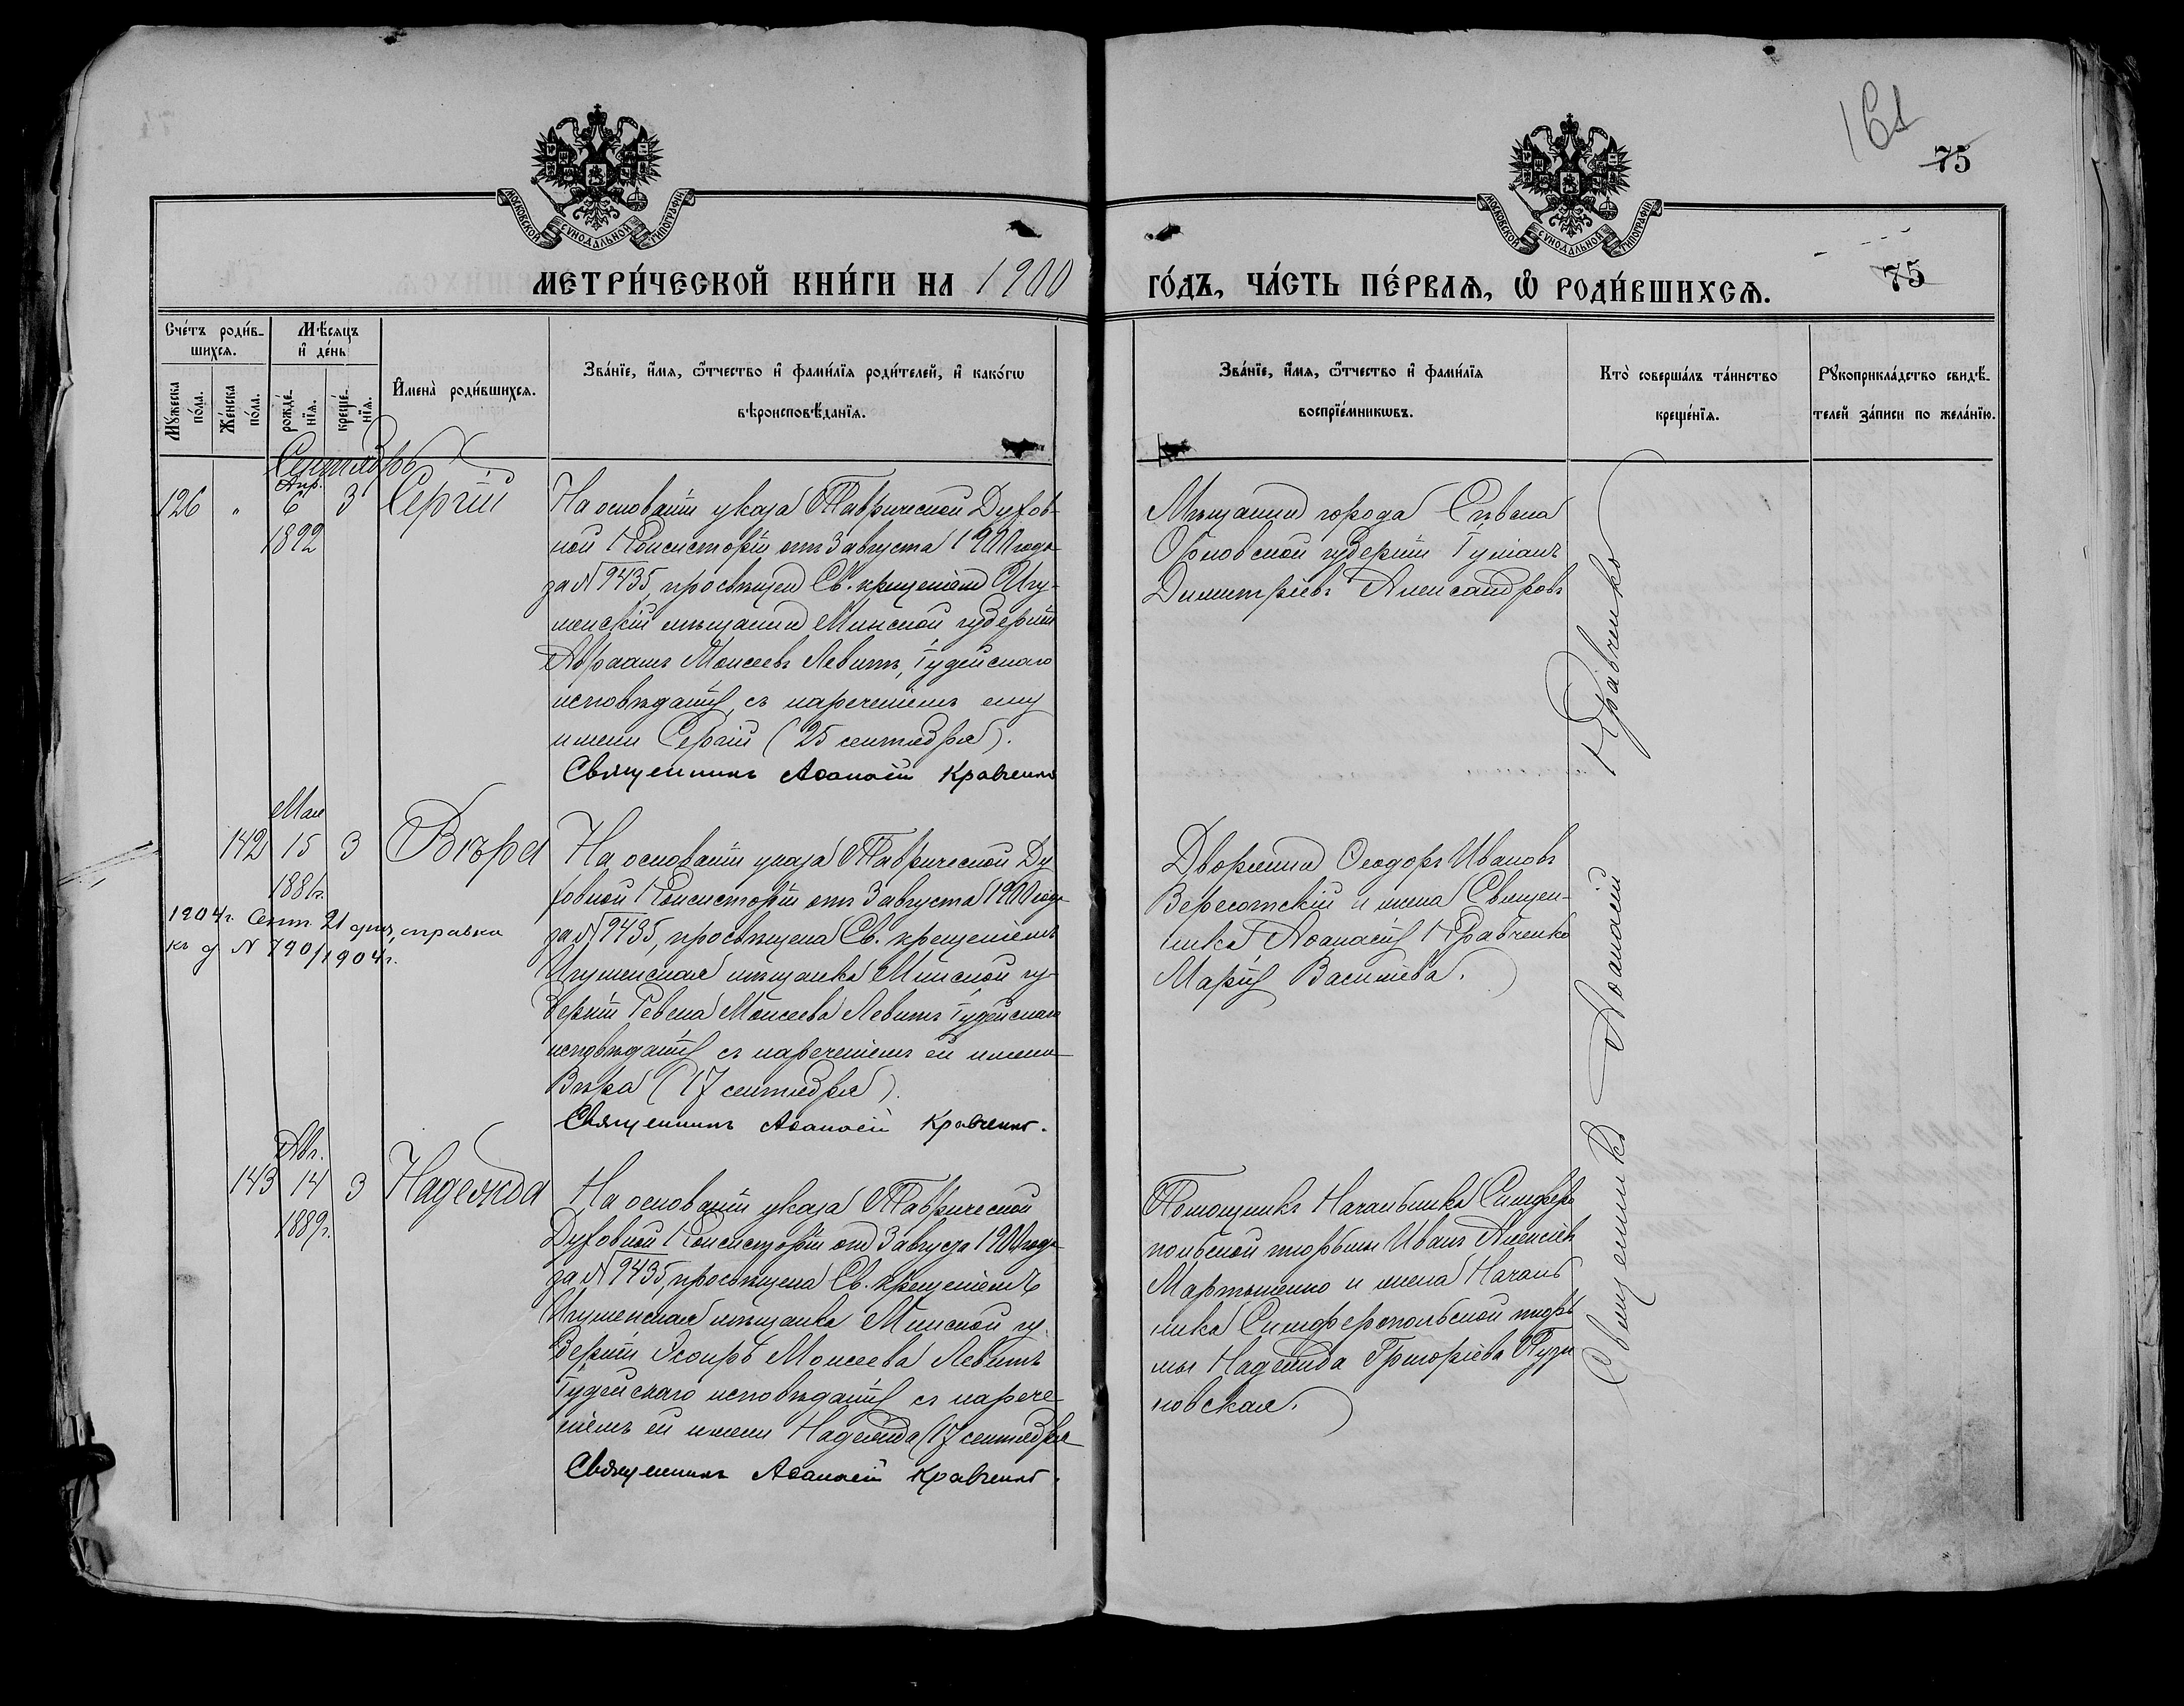 161
75
МОСКОВСКОЙ СУНОДАЛЬНОЙ ТИПОГРАФІИ
МОСКОВСКОЙ СУНОДАЛЬНОЙ ТИПОГРАФІИ
МЕТРИ́ЧЕСКОЙ КНИ́ГИ НА 1900
ГО́ДЪ, ЧА́СТЬ ПЕ́РВАѦ, Ѡ҆ РОДИ́ВШИХСѦ.
75
Сче́тъ роди́в-
шихсѧ.
Мꙋ́жеска
по́ла.
Же́нска
по́ла.
Мѣ́сяцъ
и҆ де́нь
рожде́-
нїѧ.
креще́-
нїѧ.
И҆мена̀ роди́вшихсѧ.
Зва́нїе, и҆́мѧ, ѻ҆́тчество и҆ фами́лїѧ роди́телей, и҆ како́гѡ
вѣроисповѣ́данїѧ.
Зва́нїе, и҆́мѧ, ѻ҆́тчество и҆ фами́лїѧ
воспрїе́мникѡвъ.
Кто̀ соверша́лъ та́инство
креще́нїѧ.
Рꙋкоприкла́дство свидѣ́-
телей за́писи по жела́нїю.
Сентябрь
126 " Апр. 6 3 Сергій
1892
На основаніи указа Таврической Духов-
ной Консисторіи отъ 3 августа 1900 года
за № 9435, просвѣщен Св. крещеніем Игу-
менскій мѣщанин Минской губерніи
Авраамъ Моисеевъ Левитъ, Іудейскаго
исповѣданія, съ нареченіемъ ему
имени Сергій (25 сентября).
Священникъ Аѳанасій Кравченко
Мѣщанин города Сѣвска
Орловской губерніи Іуліанъ
Димитріевъ Александровъ
Мая
142 15 3 Вѣра
1881г.
1904г. Сент. 21 дня, справка
къ д № 790/1904г.
На основаніи указа Таврической Ду
ховной Консисторіи отъ 3 августа 1900 года
за № 9435, просвѣщена Св. крещеніемъ
Игуменская мѣщанка Минской гу
берніи Ревека Моисеева Левитъ Іудейскаго
исповѣданія съ нареченіемъ ей имени
Вѣра (17 сентября).
Священникъ Аѳанасій Кравченко.
Дворянин Ѳеодоръ Ивановъ
Вересотскій и жена Священ-
ника Аѳанасія Кравченко
Марія Васильева.
Авг.
143 14 3 Надежда
1889г.
На основаніи указа Таврической
Духовной Консисторіи отъ 3 августа 1900 года
за № 9435, просвѣщена Св. крещеніемъ
Игуменская мѣщанка Минской гу
берніи Эсѳирь Моисеева Левитъ
Іудейскаго исповѣданія съ нарече-
ніемъ ей имени Надежда (17 сентября
Священникъ Аѳанасій Кравченко.
Помощникъ Начальника Симферо
польской тюрьмы Иванъ Алексѣев
Мартыненко и жена Началь
ника Симферопольской тюрь
мы Надежда Григоріева
новская.
Священникъ Аѳанасій Кравченко